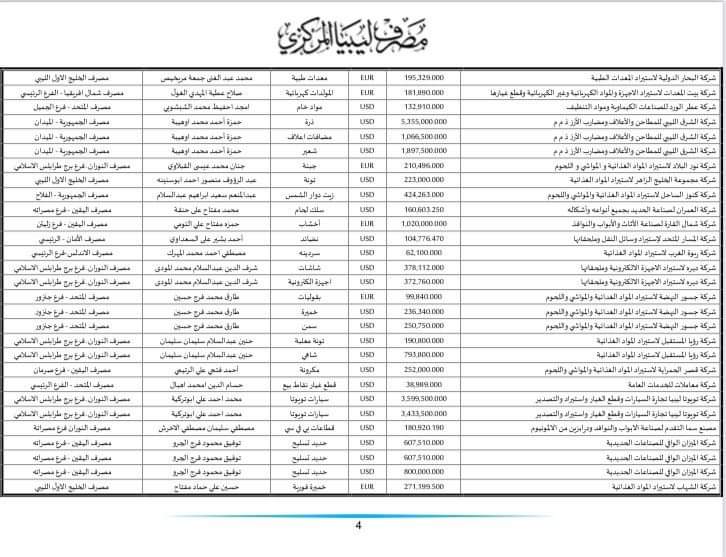 مصرف ليبيا المركزي
شركة البحار الدولية لاستيراد المعدات الطبية 195,329.000 EUR معدات طبية محمد عبد الغني جمعة مريخيص مصرف الخليج الاول الليبي
شركة بيت المعدات لاستيراد الاجهزة والمواد الكهربائية وغير الكهربائية وقطع غيارها 181,890.000 EUR المولدات كهربائية صلاح عطية المهدي الغول مصرف شمال افريقيا - الفرع الرئيسي
شركة عطر الورد للصناعات الكيماوية ومواد التنظيف 132,910.000 USD مواد خام امجد احفيظ محمد الشبشوبي مصرف المتحد - فرع الجميل
شركة الشرق الليبي للمطاحن والأعلاف ومضارب الأرز ذ م م 5,355,000.000 USD ذرة حمزة أحمد محمد اوهيبة مصرف الجمهورية - الميدان
شركة الشرق الليبي للمطاحن والأعلاف ومضارب الأرز ذ م م 1,066,500.000 USD مضافات اعلاف حمزة أحمد محمد اوهيبة مصرف الجمهورية - الميدان
شركة الشرق الليبي للمطاحن والأعلاف ومضارب الأرز ذ م م 1,897,500.000 USD شعير حمزة أحمد محمد اوهيبة مصرف الجمهورية - الميدان
شركة نور البلاد لاستيراد المواد الغذائية و المواشي و اللحوم 210,496.000 EUR جبنة جنان محمد عيسى القبلاوي مصرف النوران. فرع برج طرابلس الاسلامي
شركة مجموعة الخليج الزاهر لاستيراد المواد الغذائية 223,000.000 USD تونة عبد الرؤوف منصور احمد ابوستينه مصرف الخليج الاول الليبي
شركة كنوز الساحل لاستيراد المواد الغذائية والمواشي واللحوم 424,263.000 USD زيت دوار الشمس عبدالمنعم سعيد ابراهيم عبدالسلام مصرف الجمهورية - الفلاح
شركة العمران لصناعة الحديد بجميع أنواعه وأشكاله 160,603.250 USD سلك لحام محمد مفتاح علي حنقة مصرف اليقين - فرع مصراته
شركة شمال القارة لصناعة الأثاث والأبواب والنوافذ 1,020,000.000 EUR أخشاب حمزه مفتاح علي التومي مصرف اليقين - فرع زليتن
شركة المسار المتحد لإستيراد وسائل النقل وملحقاتها 104,776.470 USD نضائد أحمد بشير على السعداوي مصرف الأمان - الرئيسي
شركة ربوة الغرب لاستيراد المواد الغذائية 62,100.000 USD سردينه مصطفي احمد محمد المبرك مصرف الاندلس -فرع الرئيسي
شركة ديره لاستيراد الاجهزة الالكترونية وملحقاتها 378,112.000 USD شاشات شرف الدين عبدالسلام محمد المودى مصرف النوران. فرع برج طرابلس الاسلامي
شركة ديره لاستيراد الاجهزة الالكترونية وملحقاتها 372,760.000 USD اجهزة الكترونية شرف الدين عبدالسلام محمد المودى مصرف النوران. فرع برج طرابلس الاسلامي
شركة جسور النهضة لاستيراد المواد الغذائية والمواشي واللحوم 99,840.000 EUR بقوليات طارق محمد فرج حسين مصرف المتحد - فرع جنزور
شركة جسور النهضة لاستيراد المواد الغذائية والمواشي واللحوم 236,340.000 USD خميرة طارق محمد فرج حسين مصرف المتحد - فرع جنزور
شركة جسور النهضة لاستيراد المواد الغذائية والمواشي واللحوم 250,750.000 USD سمن طارق محمد فرج حسين مصرف المتحد - فرع جنزور
شركة رؤيا المستقبل لاستيراد المواد الغذائية 190,800.000 USD تونة معلبة حنين عبدالسلام سليمان سليمان مصرف النوران. فرع برج طرابلس الاسلامي
شركة رؤيا المستقبل لاستيراد المواد الغذائية 793,800.000 USD شاهي حنين عبدالسلام سليمان سليمان مصرف النوران. فرع برج طرابلس الاسلامي
شركة قصر الحمراية لاستيراد المواد الغذائية والمواشي واللحوم 252,000.000 USD مكرونة أحمد فتحي علي الرتيمي مصرف اليقين - فرع صرمان
شركة معاملات للخدمات العامة 38,989.000 USD قطع غيار نقاط بيع حسام الدين امحمد اهبال مصرف المتحد - الفرع الرئيسي
شركة تويوتا ليبيا تجارة السيارات وقطع الغيار واستيراد والتصدير 3,599,500.000 USD سيارات تويوتا محمد احمد علي ابوتركية مصرف النوران. فرع برج طرابلس الاسلامي
شركة تويوتا ليبيا تجارة السيارات وقطع الغيار واستيراد والتصدير 3,433,500.000 USD سيارات تويوتا محمد احمد علي ابوتركية مصرف النوران. فرع برج طرابلس الاسلامي
مصنع سما التقدم لصناعة الابواب والنوافد ودرابزين من الالمونيوم 180,920.190 USD قطاعات بي في سي مصطفي سليمان مصطفي الاخرش مصرف النوران فرع مصراتة
شركة الميزان الوافي للصناعات الحديدية 607,510.000 USD حديد تسليح توفيق محمود فرج الجرو مصرف اليقين - فرع مصراته
شركة الميزان الوافي للصناعات الحديدية 607,510.000 USD حديد تسليح توفيق محمود فرج الجرو مصرف اليقين - فرع مصراته
شركة الميزان الوافي للصناعات الحديدية 800,000.000 USD حديد تسليح توفيق محمود فرج الجرو مصرف اليقين - فرع مصراته
شركة الشهاب لاستيراد المواد الغذائية 271,199.500 EUR خميرة فورية حسين علي حماد مفتاح مصرف الخليج الاول الليبي
4